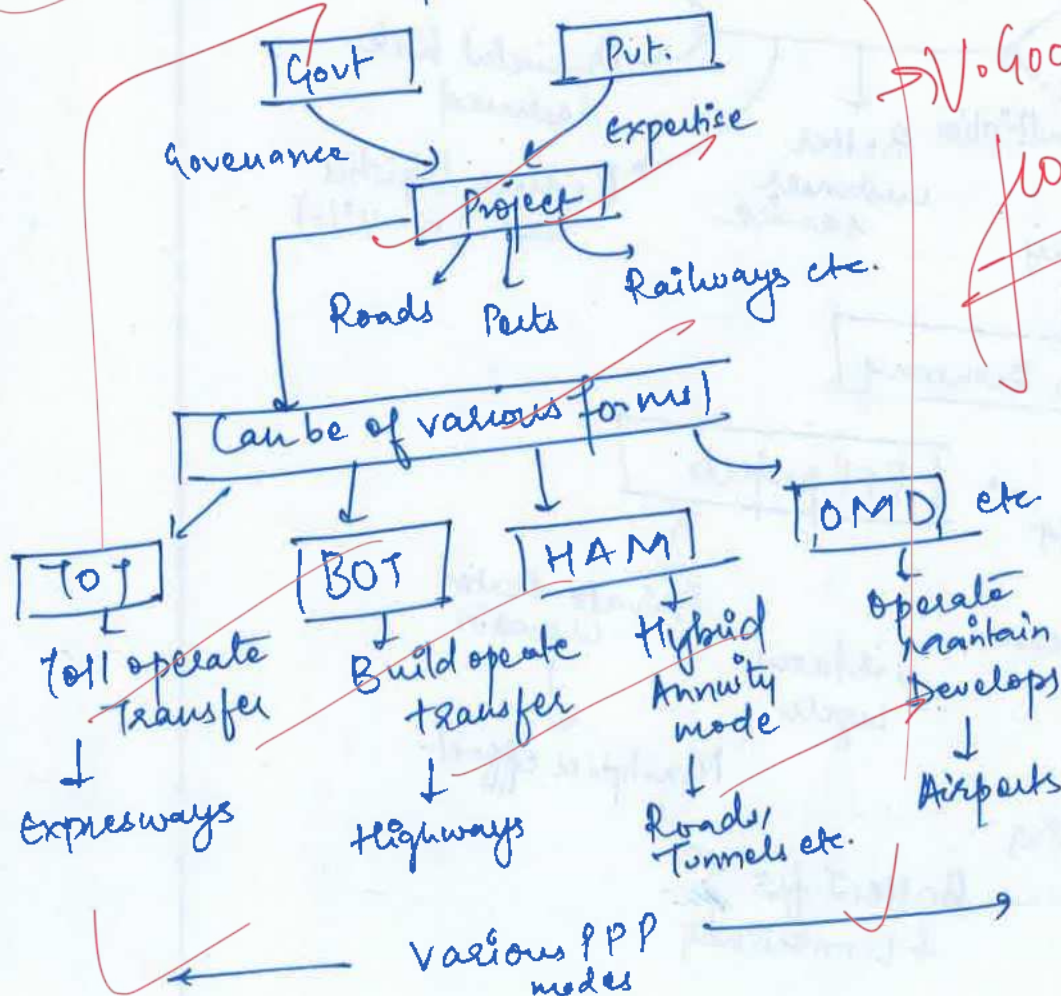 Govt
Pvt.
Governance
expertise
Project
Roads
Ports
Railways etc.
Can be of various forms
TOT
BOT
HAM
OMD
etc
Toll operate
Transfer
Build operate
transfer
Hybrid
Annuity
mode
Operate
maintain
Develops
Expresways
Highways
Roads/
Tunnels etc.
Airports
Various PPP
modes
V. Goo